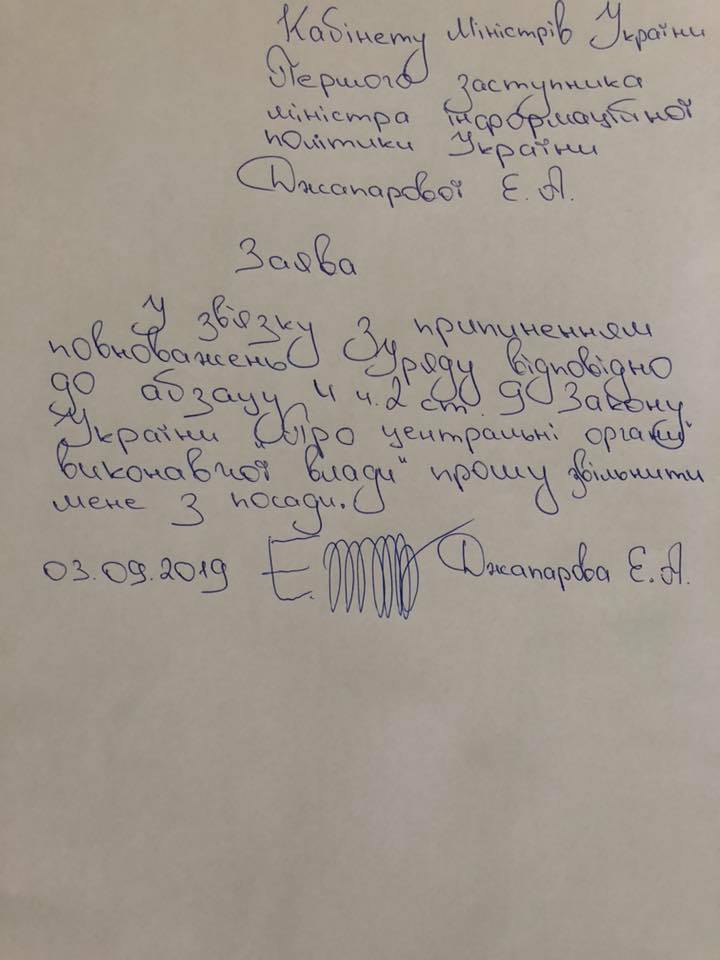 Кабінету Міністрів України
Першого заступника
міністра інформаційної
політики України
Джапарової Е. А.
Заява
У звязку з припиненням
повноважень Уряду відповідно
до абзацу 4 ч. 2 ст. 9 Закону
України „Про центральні органи
виконавчої влади" прошу звільнити
мене з посади.
03.09.2019 Е. Джапарова Е. А.